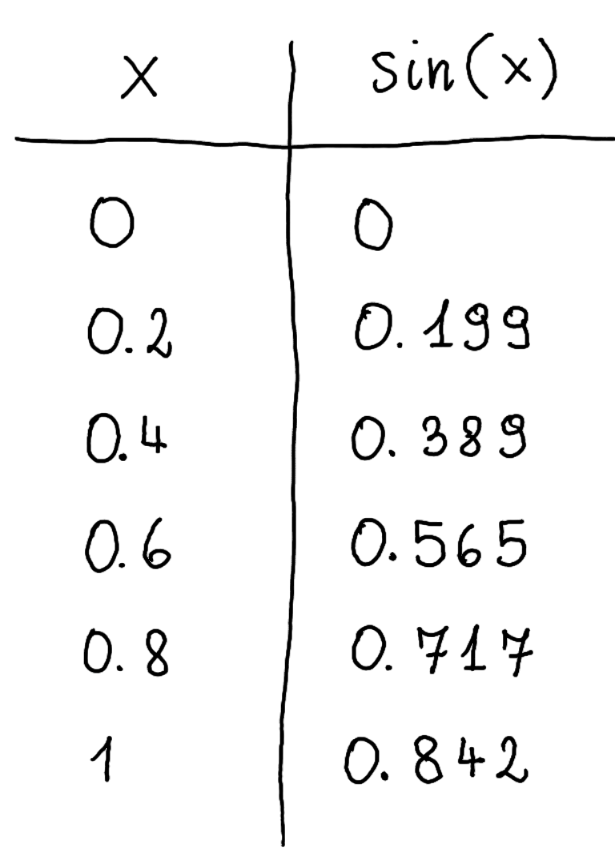 x sin(x)
0 0
0.2 0.199
0.4 0.389
0.6 0.565
0.8 0.717
1 0.842